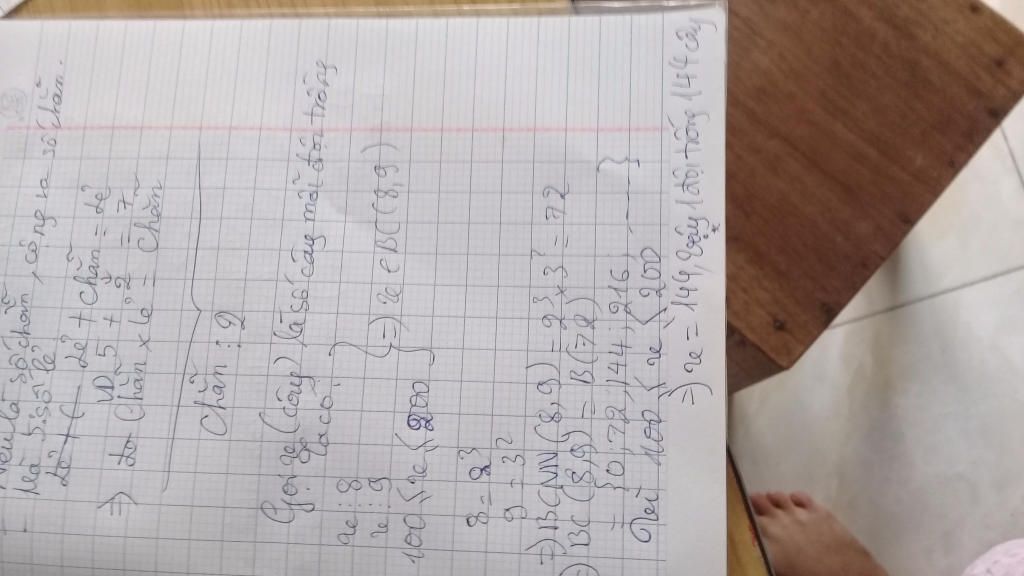 Nếu là số chẵn, cộng ra số chẵn.
Là 5 số lẻ
Lẻ + Chẵn = Lẻ
VD 5 + 2 = 7
=> Chẵn x lẻ = Chẵn
Chẵn : 2
Gọi x (cây) là số cây mỗi đội trồng
Ta có:
x ⋮ 8
x ⋮ 9
100 ≤ x ≤ 200
} => x ∈ BC(8,9)
8 = 2³
9 = 3²
=> BCNN(8,9) = 2³ x 3² = 72
=> BC(8,9) = B(72)
= {0; 72; 144; 216; ----}
Mà 100 ≤ x ≤ 200
=> x = 144, Vậy 1 đội trồng 144 cây